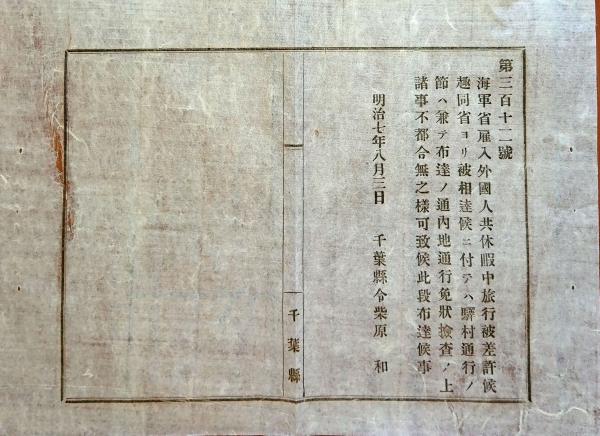 第三百十二號
海軍省雇入外國人共休暇中旅行被差許候
趣同省ヨリ被相達候ニ付テハ驛村通行ノ
節ハ兼テ布達ノ通內地通行免狀撿査ノ上
諸事不都合無之樣可致候此段布達候事
明治七年八月三日 千葉縣令柴原 和
千葉縣